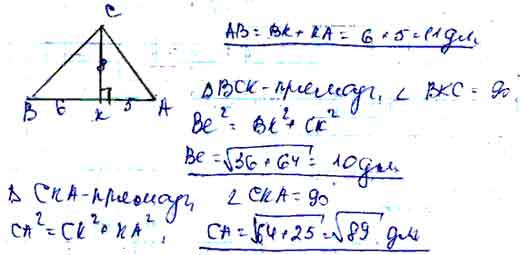 C
8
B 6 K 5 A
AB = BK + KA = 6 + 5 = 11 дм
Δ BCK - прямоуг, ∠ BKC = 90
BC² = BK² + CK²
BC = √36 + 64 = 10 дм
Δ CKA - прямоуг, ∠ CKA = 90
CA² = CK² + KA², CA = √64 + 25 = √89 дм